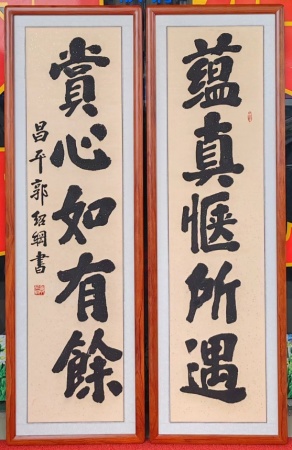 蘊真愜所遇
賞心如有餘
昌平郭紹綱書